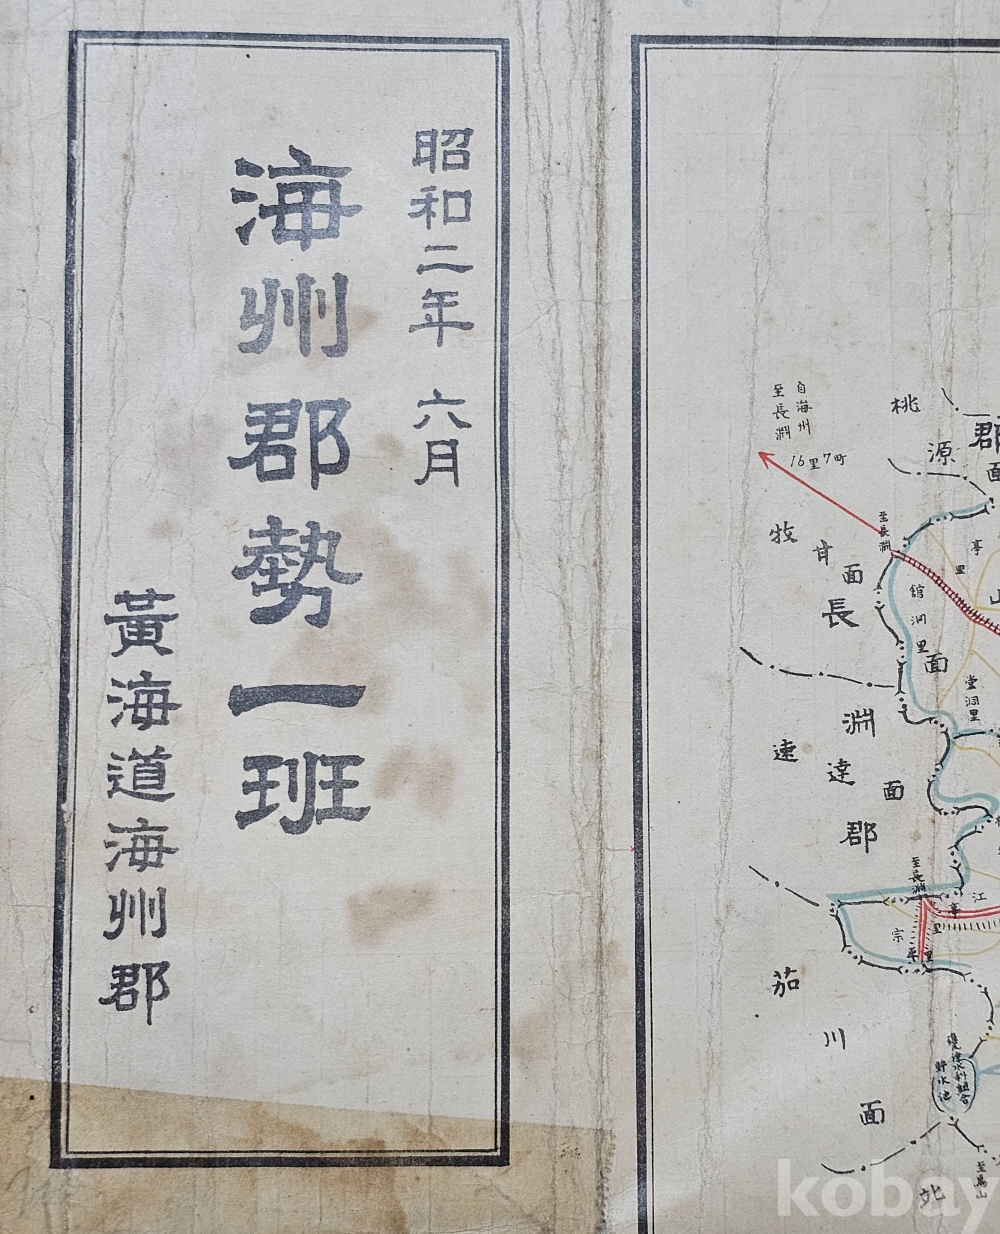 昭和二年 六月
海州郡勢一班
黃海道海州郡
自海州
至長淵
16里7町
桃源面
郡
牧甘面
長淵郡
至長淵
亭里
舘洞里
面
堂洞里
速達面
至長淵
江
亭里
宗平里
茄川面
水利組合
貯水池
至馬山
北
kobay